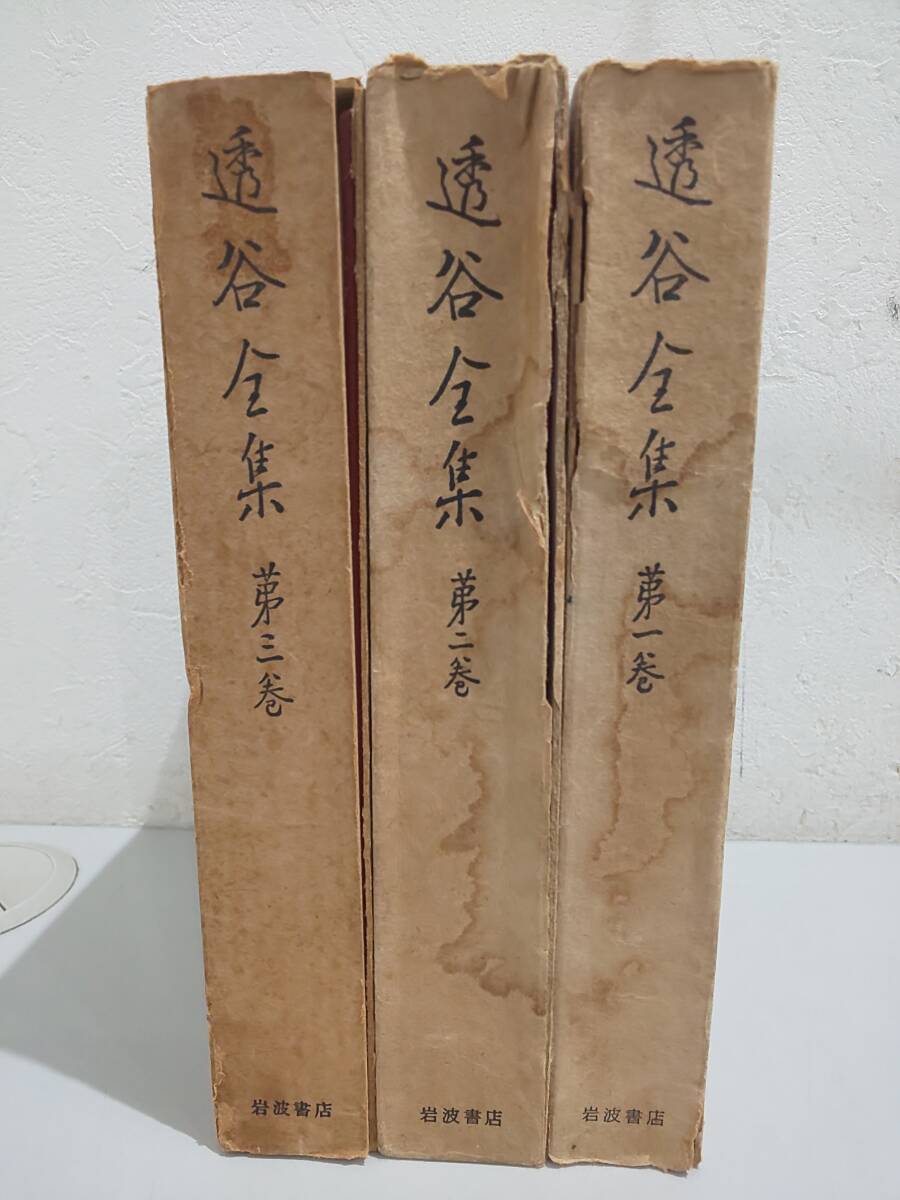 透谷全集 第一巻
岩波書店
透谷全集 第二巻
岩波書店
透谷全集 第三巻
岩波書店